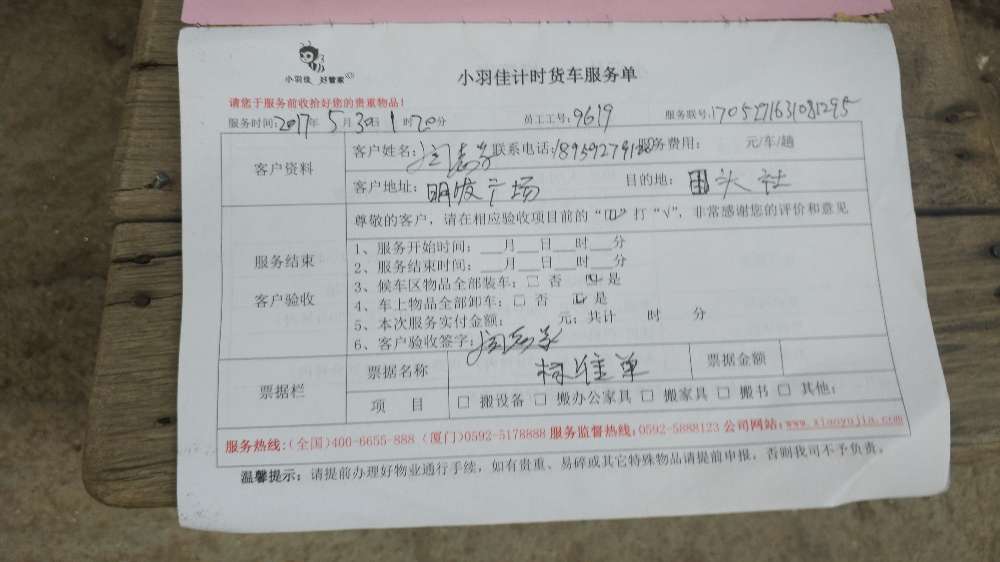 小羽佳 好管家
小羽佳计时货车服务单
请您于服务前收拾好您的贵重物品！
服务时间：2017年5月30日1时20分 员工工号：9619 服务联号：1705271631081295
客户资料
客户姓名： 联系电话： 服务费用： 元/车/趟
客户地址：明发广场 目的地：田头社
服务结束
客户验收
尊敬的客户，请在相应验收项目前的“口”打“√”，非常感谢您的评价和意见
1、服务开始时间：___月___日___时___分
2、服务结束时间：___月___日___时___分
3、候车区物品全部装车：□ 否 ☑ 是
4、车上物品全部卸车：□ 否 ☑ 是
5、本次服务实付金额： 元；共计 时 分
6、客户验收签字：
票据栏
票据名称 标准单 票据金额
项 目 □ 搬设备 □ 搬办公家具 □ 搬家具 □ 搬书 □ 其他：
服务热线：(全国)400-6655-888 (厦门)0592-5178888 服务监督热线：0592-5888123 公司网站：www.xiaoyujia.com
温馨提示：请提前办理好物业通行手续，如有贵重、易碎或其它特殊物品请提前申报，否则我司不予负责。